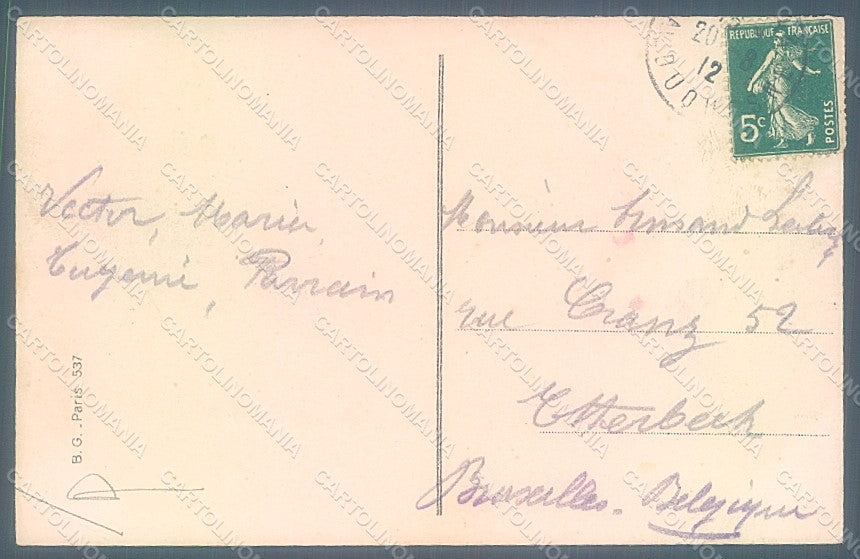 Victor, Maria,
Eugenie, Parrain
B.G. - Paris 537
20
8
12
REPUBLIQUE FRANÇAISE
5c
POSTES
Monsieur Armand
rue Cranz 52
Etterbeek
Bruxelles. Belgique
CARTOLINOMANIA